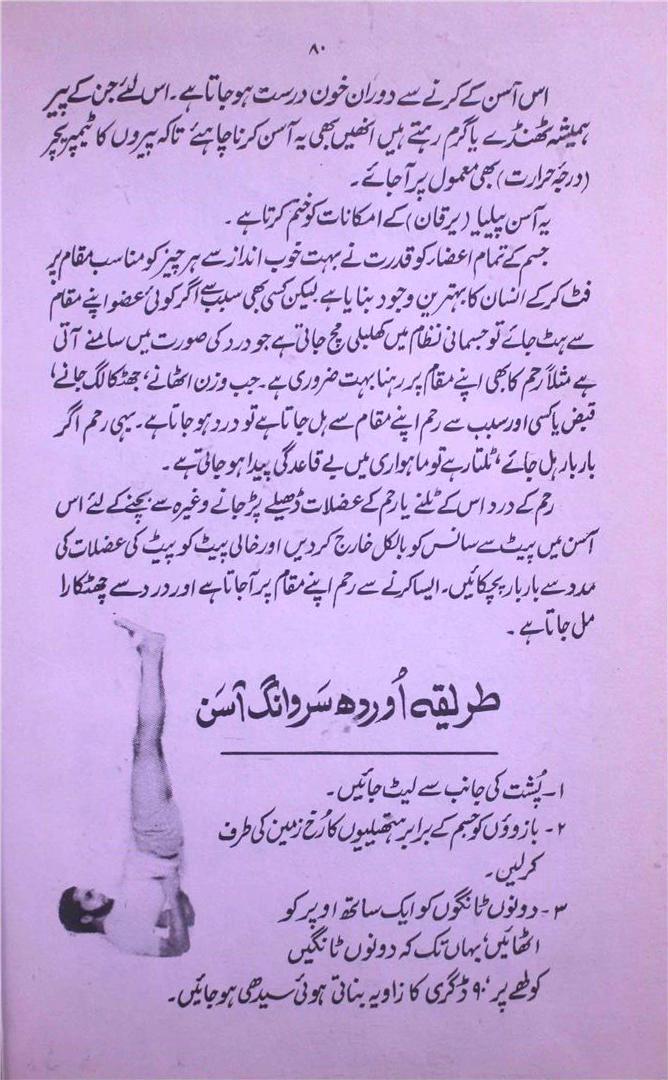 ۸۰
اس آسن کے کرنے سے دوران خون درست ہو جاتا ہے۔ اس لئے جن کے پیر
ہمیشہ ٹھنڈے یا گرم رہتے ہیں انھیں بھی یہ آسن کرنا چاہئے تاکہ پیروں کا ٹیمپریچر
(درجۂ حرارت) بھی معمول پر آ جائے۔
یہ آسن پیلیا (یرقان) کے امکانات کو ختم کرتا ہے۔
جسم کے تمام اعضاء کو قدرت نے بہت خوب انداز سے ہر چیز کو مناسب مقام پر
فٹ کر کے انسان کا بہترین وجود بنایا ہے لیکن کسی بھی سبب سے اگر کوئی عضو اپنے مقام
سے ہٹ جائے تو جسمانی نظام میں کھلبلی مچ جاتی ہے جو درد کی صورت میں سامنے آتی
ہے مثلاً رحم کا بھی اپنے مقام پر رہنا بہت ضروری ہے۔ جب وزن اٹھانے، جھٹکا لگ جانے،
قبض یا کسی اور سبب سے رحم اپنے مقام سے ہل جاتا ہے تو درد ہو جاتا ہے۔ یہی رحم اگر
بار بار ہل جائے، ٹلتا رہے تو ماہواری میں بے قاعدگی پیدا ہو جاتی ہے۔
رحم کے درد اس کے ٹلنے یا رحم کے عضلات ڈھیلے پڑ جانے وغیرہ سے بچنے کے لئے اس
آسن میں پیٹ سے سانس کو بالکل خارج کر دیں اور خالی پیٹ کو پیٹ کی عضلات کی
مدد سے بار بار پچکائیں۔ ایسا کرنے سے رحم اپنے مقام پر آ جاتا ہے اور درد سے چھٹکارا
مل جاتا ہے۔
طریقہ اُوردھ سَروانگ آسَن
۱۔ پُشت کی جانب سے لیٹ جائیں۔
۲۔ بازوؤں کو جسم کے برابر ہتھیلیوں کا رُخ زمین کی طرف
کر لیں۔
۳۔ دونوں ٹانگوں کو ایک ساتھ اوپر کو
اٹھائیں، یہاں تک کہ دونوں ٹانگیں
کولھے پر ۹۰ ڈگری کا زاویہ بناتی ہوئی سیدھی ہو جائیں۔